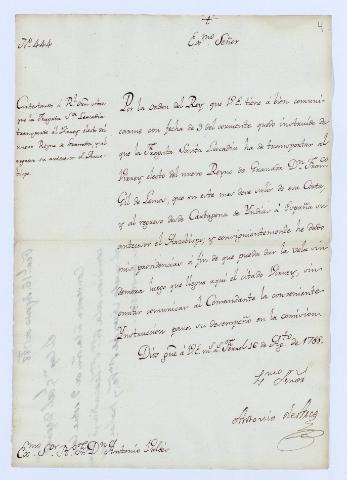 4
Exmo Señor
Nº 444
Contextando el Rl. Orn sobre
que la Fragata Sta. Leocadia
transporte al Virrey electo del
nuevo Reyno de Granada, y al
regreso su antecesor el Arzo-
bispo.
Por la orden del Rey que V.E. tiene à bien comuni-
carme con fecha de 3 del corriente quedo instruido de
que la Fragata Santa Leocadia ha de transportar al
Virrey electo del nuevo Reyno de Granada Dn. Franco
Gil de Lemos, que en este mes debe salir de esa Corte,
y al regreso desde Cartagena de Yndias à España su
antecesor el Arzobispo, y consiguientemente he dado
mis providencias à fin de que pueda dar la vela sin
demora luego que llegue aqui el citado Virrey, sin
omitir comunicar al Comandante la conveniente
Ynstruccion para su desempeño en la comision.
Dios gue à V.E. ms. as. Sn. Fernl. 16 de Agto de 1788.
Exmo Señor
Antonio de Arce
Exmo Sor. Bo. Fr. Dn Antonio Valdés